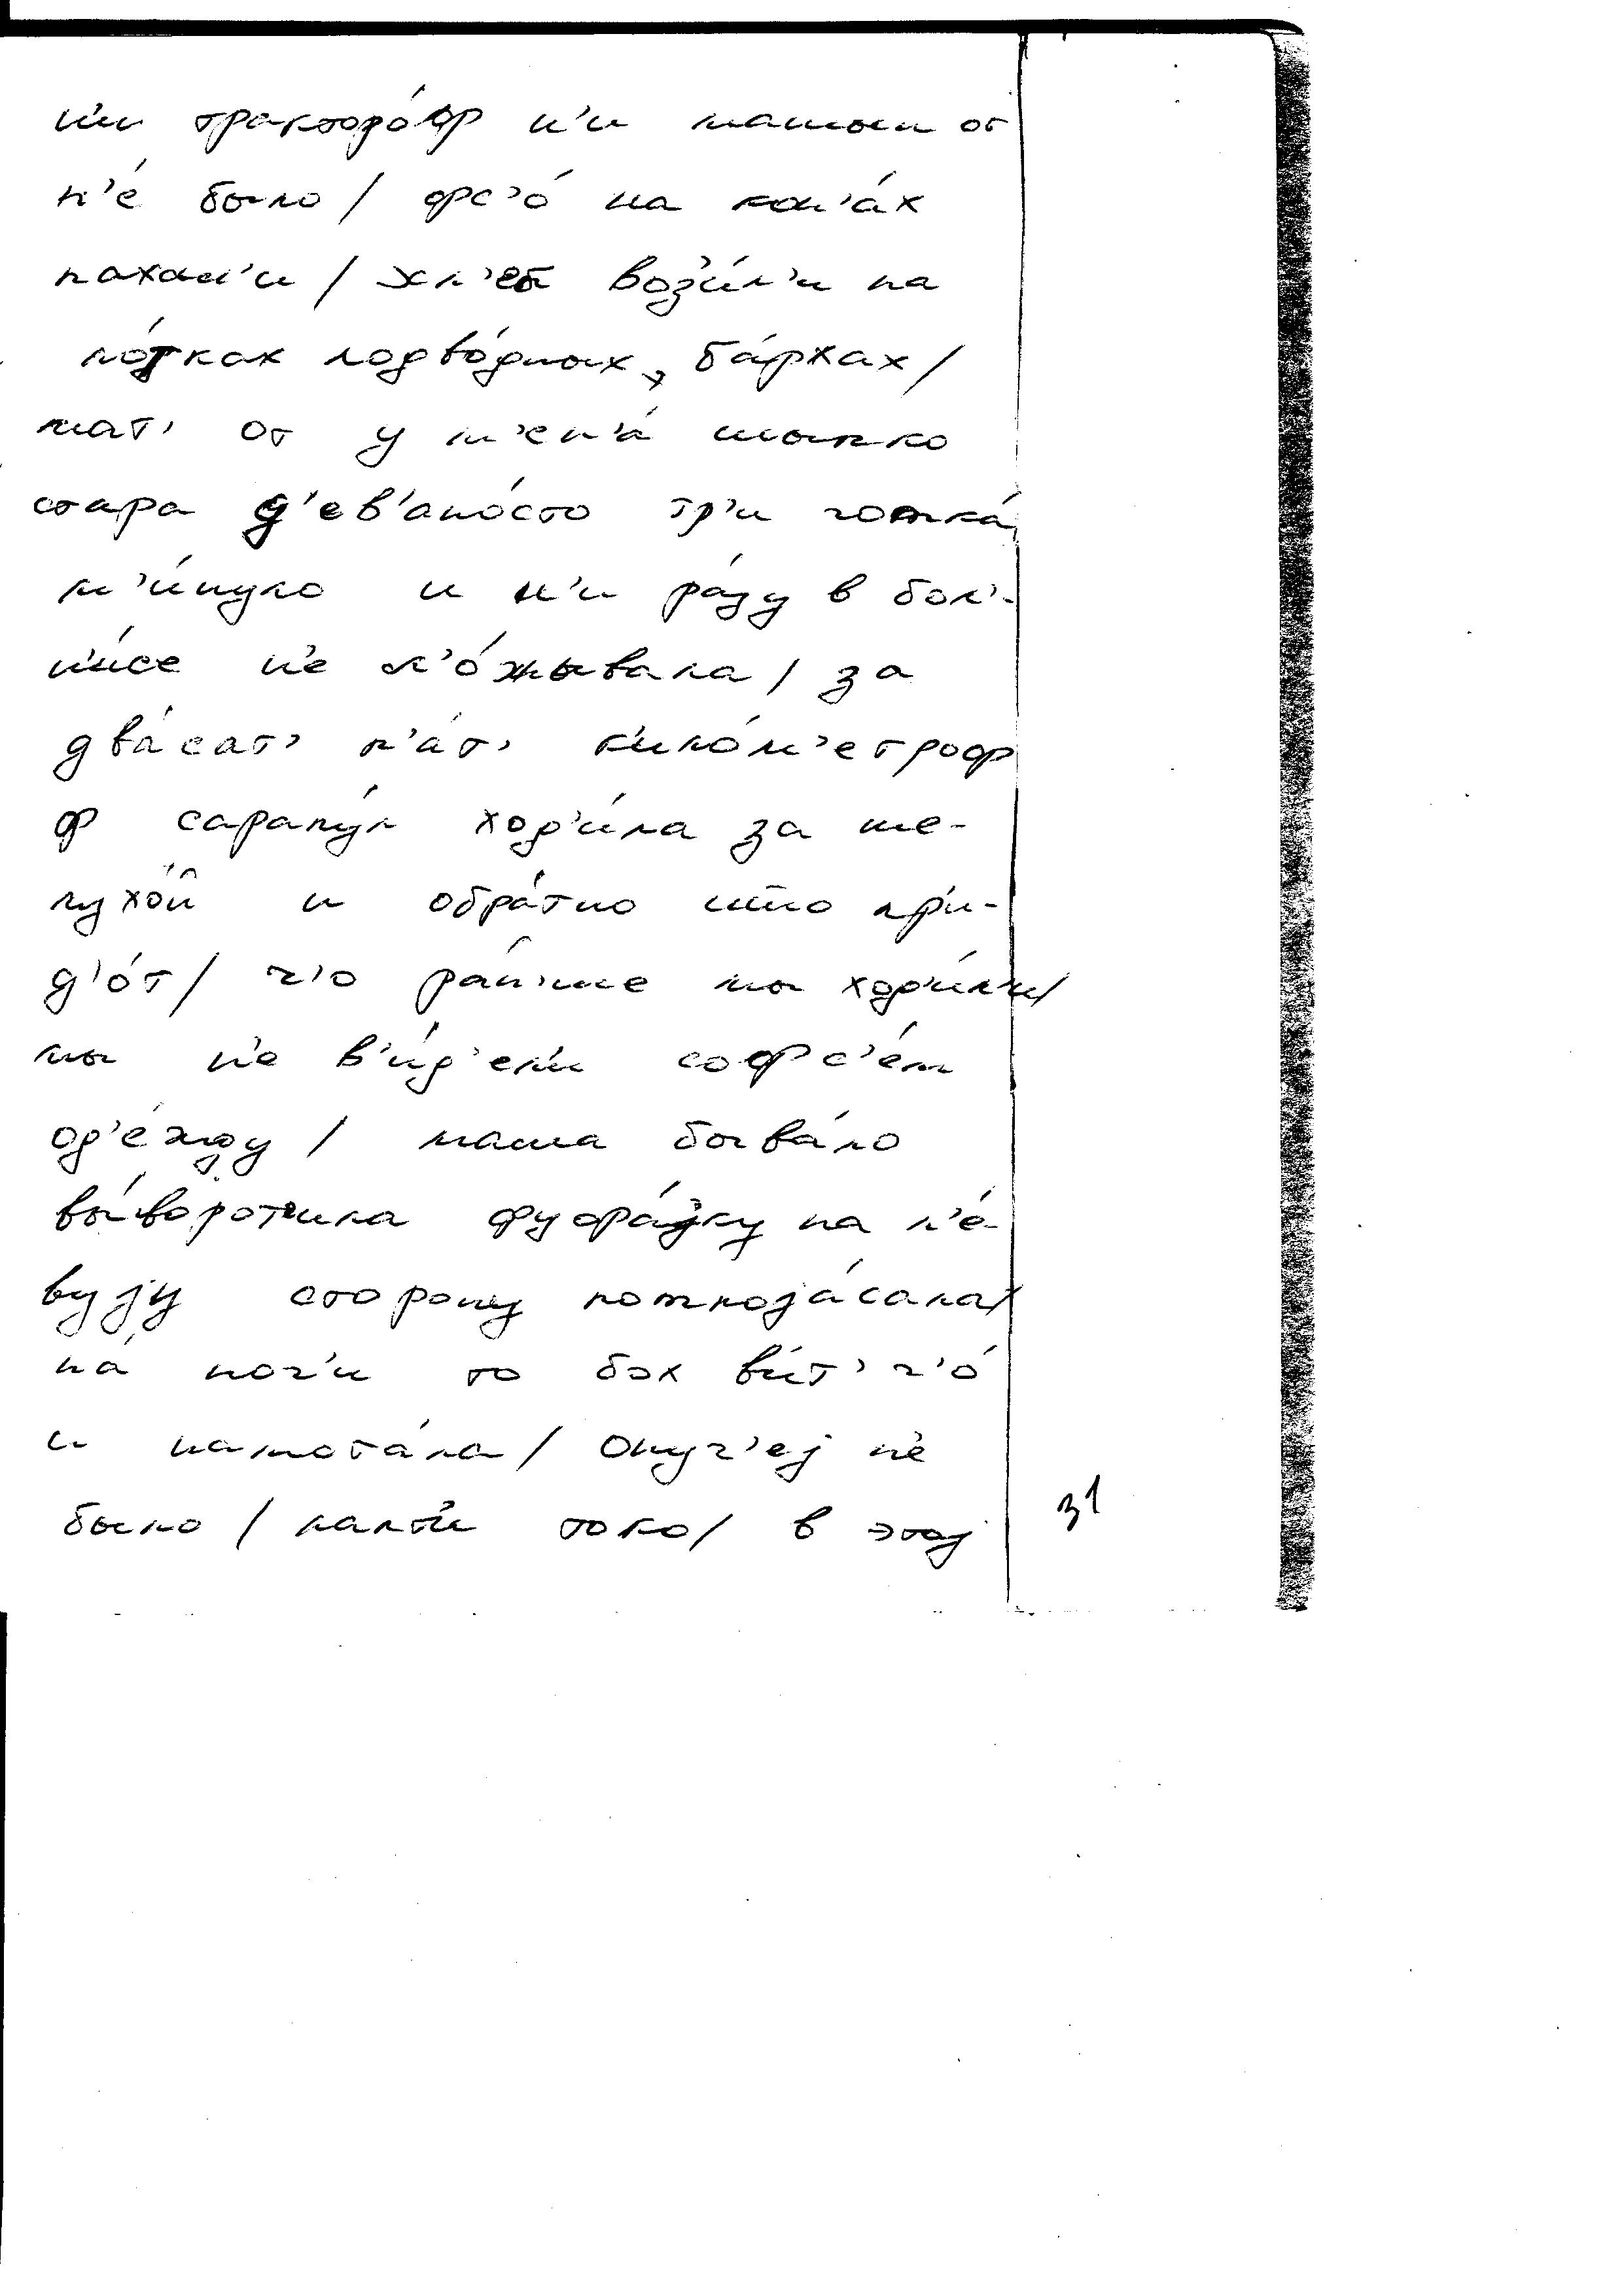 н'и трактороф н'и машын от
н'е было / фс'о́ на кон'а́х
пахал'и / хл'еб воз'и́л'и на
ло́тках подво́дных, ба́ржах /
мат' от у м'ен'а́ шыпко
стара д'ев'ано́сто тр'и готка́
м'и́нуло и н'и ра́зу в бол'-
н'и́се н'е л'о́жывала / за
два́сат' п'а́т' к'ило́м'етроф
ф сарапу́л ход'и́ла за ше-
лухо́й и обра́тно што пр'и-
д'о́т / ч'о ра́н'ше мы ход'и́л'и /
мы н'е в'и́д'ел'и софс'е́м
од'е́жду / мама быва́ло
вы́ворот'ила фуфа́йку на л'е́-
вуjу сторону потпоjа́сала /
на́ ног'и то бох в'ит' ч'о́
и намота́ла / онуч'еj н'е
было / лапт'и токо / в этоj
31